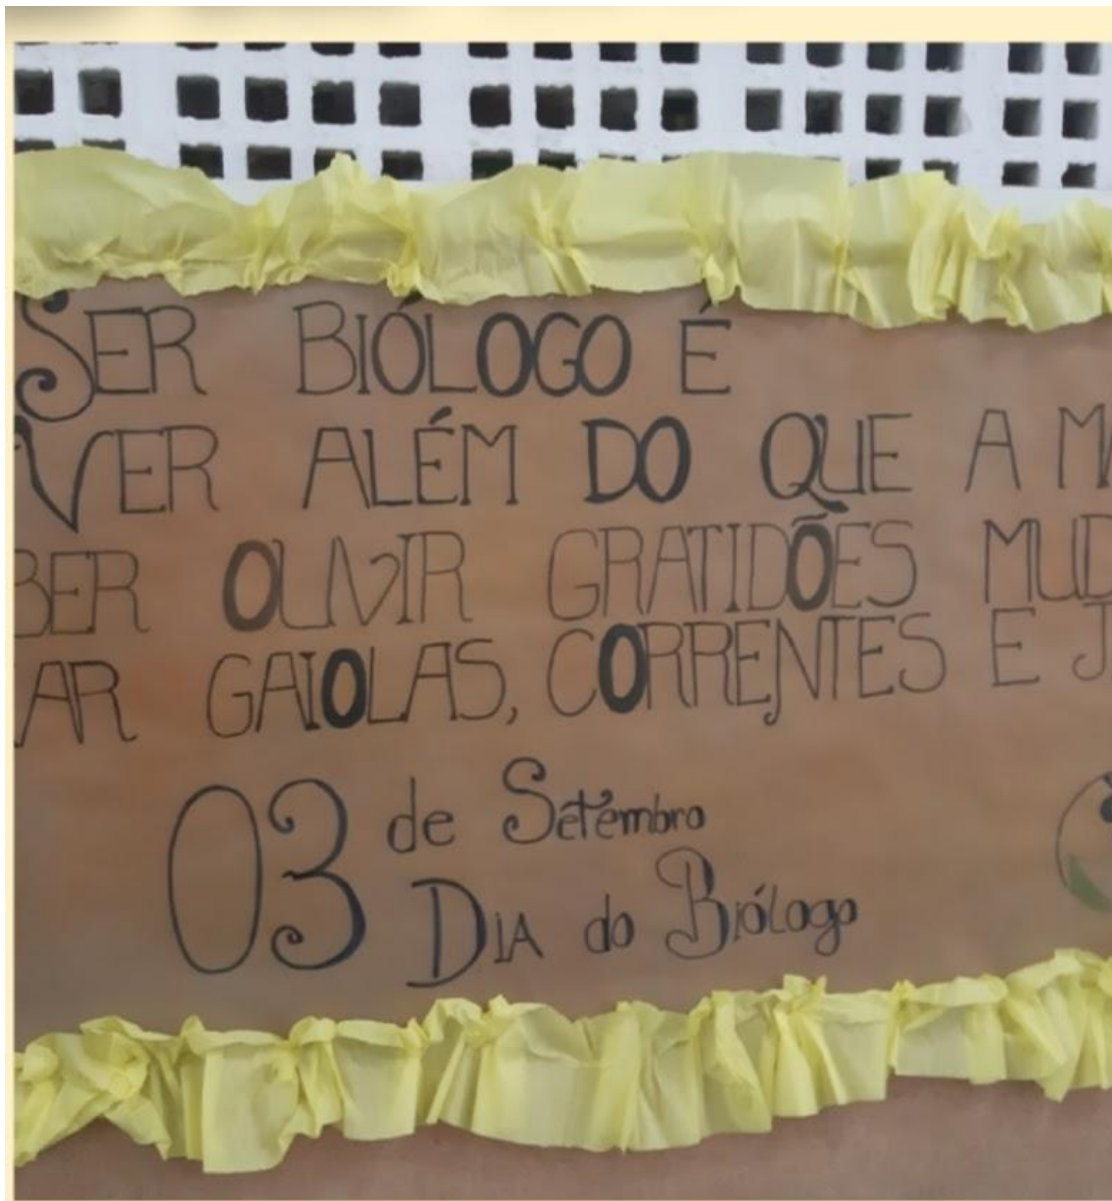 SER BIÓLOGO É
VER ALÉM DO QUE A
OUVIR GRATIDÕES
GAIOLAS, CORRENTES E
03 de Setembro
DIA do Biólogo